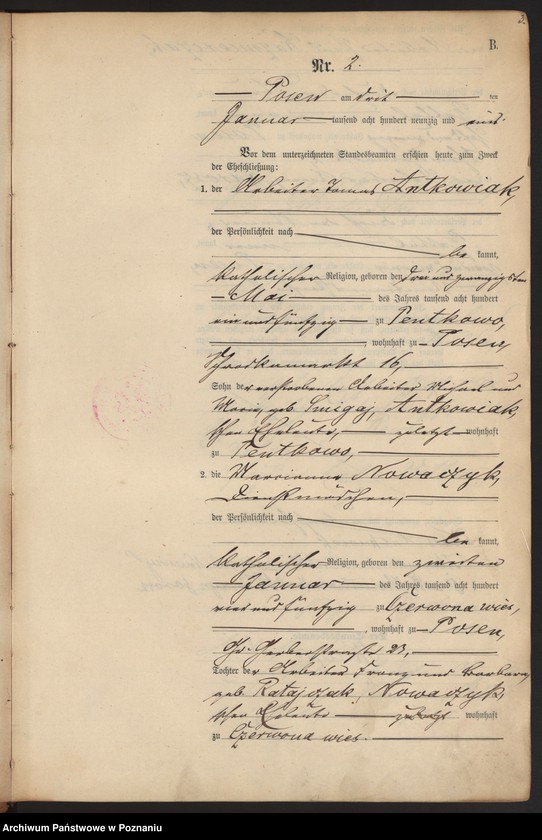 B.
Nr. 2.
Posen am drit ten
Januar tausend acht hundert neunzig und eins.
Vor dem unterzeichneten Standesbeamten erschien heute zum Zweck
der Eheschließung:
1. der Arbeiter Tomas Antkowiak,
der Persönlichkeit nach
be kannt,
katholischer Religion, geboren den drei und zwanzigsten
Mai des Jahres tausend acht hundert
ein und fünfzig zu Pentkowo,
, wohnhaft zu Posen,
Schrodkamarkt 16,
Sohn der verstorbenen Arbeiter Michael und
Maria, geb. Smigaj, Antkowiak,
schen Eheleute, zuletzt wohnhaft
zu Pentkowo,
2. die Marcianna Nowaczyk,
Dienstmädchen,
der Persönlichkeit nach
be kannt,
katholischer Religion, geboren den zweiten
Januar des Jahres tausend acht hundert
vier und fünfzig zu Czerwona wies,
, wohnhaft zu Posen,
Gr. Gerberstraße 23,
Tochter der Arbeiter Franz und Barbara
geb. Ratajczak, Nowaczyk
schen Eheleute wohnhaft
zu Czerwona wies.
Archiwum Państwowe w Poznaniu